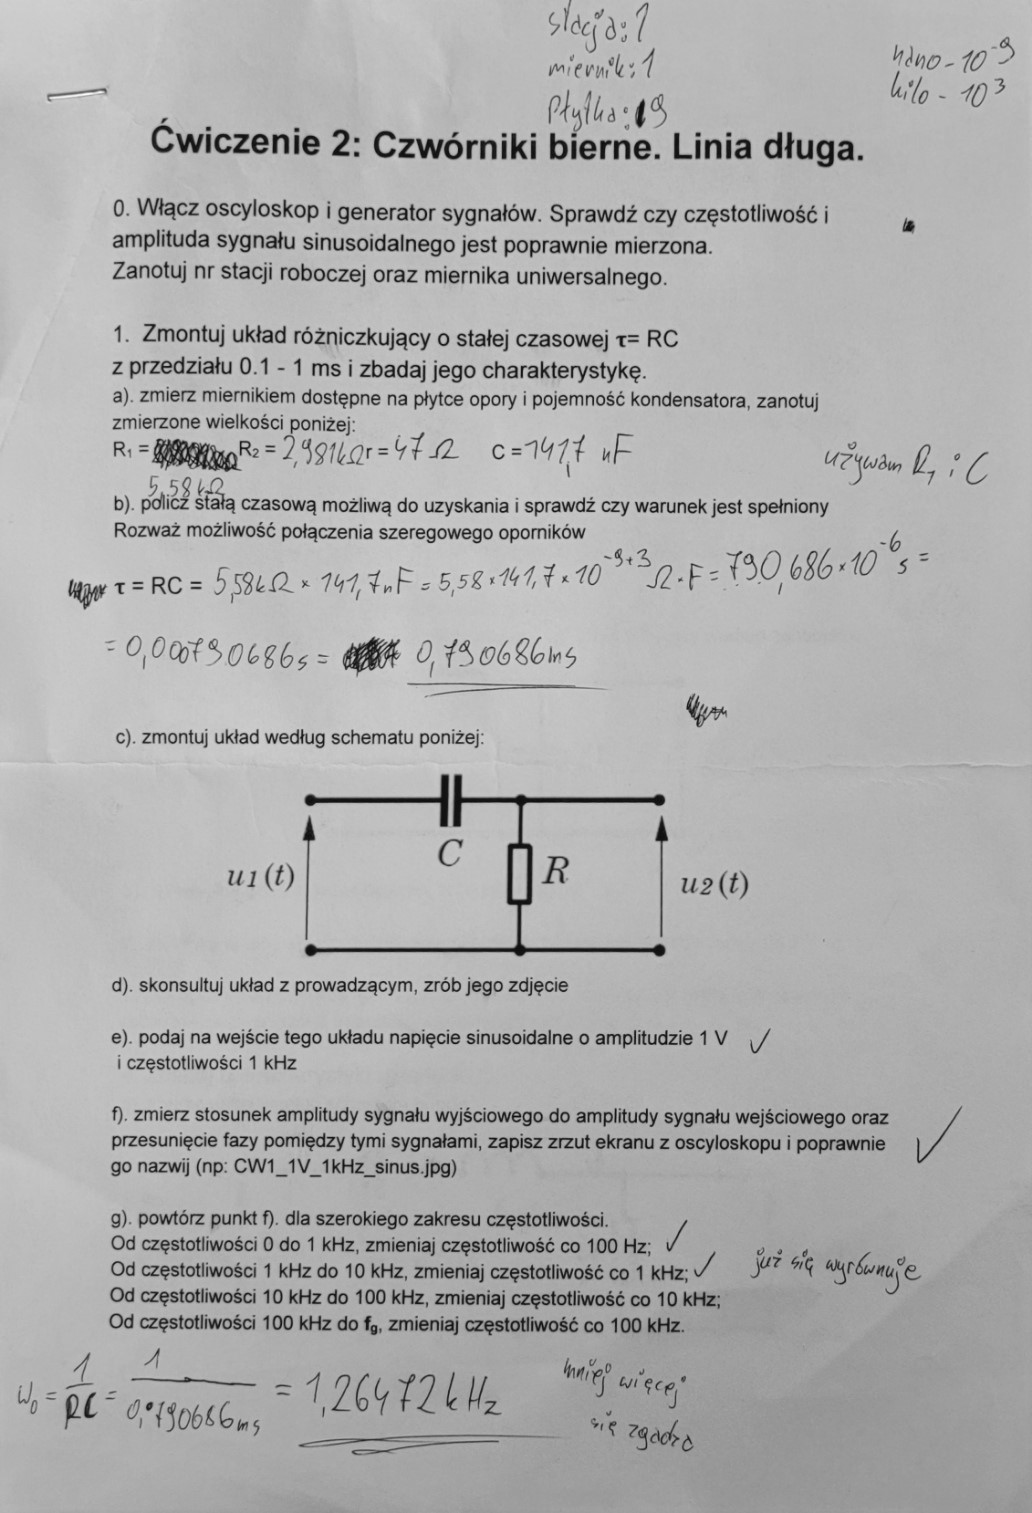 stacja: 1
miernik: 1
Płytka: 19
nano - 10^-9
kilo - 10^3
Ćwiczenie 2: Czwórniki bierne. Linia długa.
0. Włącz oscyloskop i generator sygnałów. Sprawdź czy częstotliwość i
amplituda sygnału sinusoidalnego jest poprawnie mierzona.
Zanotuj nr stacji roboczej oraz miernika uniwersalnego.
1. Zmontuj układ różniczkujący o stałej czasowej τ= RC
z przedziału 0.1 - 1 ms i zbadaj jego charakterystykę.
a). zmierz miernikiem dostępne na płytce opory i pojemność kondensatora, zanotuj
zmierzone wielkości poniżej:
R₁ = 5,58 kΩ R₂ = 2,981kΩ r = 47 Ω C = 141,7 nF
używam R₁ i C
b). policz stałą czasową możliwą do uzyskania i sprawdź czy warunek jest spełniony
Rozważ możliwość połączenia szeregowego oporników
τ = RC = 5,58kΩ × 141,7nF = 5,58 × 141,7 × 10^-9+3 Ω·F = 790,686 × 10^-6 s =
= 0,000790686s = 0,790686ms
c). zmontuj układ według schematu poniżej:
C
R
u1(t)
u2(t)
d). skonsultuj układ z prowadzącym, zrób jego zdjęcie
e). podaj na wejście tego układu napięcie sinusoidalne o amplitudzie 1 V ✓
i częstotliwości 1 kHz
f). zmierz stosunek amplitudy sygnału wyjściowego do amplitudy sygnału wejściowego oraz
przesunięcie fazy pomiędzy tymi sygnałami, zapisz zrzut ekranu z oscyloskopu i poprawnie ✓
go nazwij (np: CW1_1V_1kHz_sinus.jpg)
g). powtórz punkt f). dla szerokiego zakresu częstotliwości.
Od częstotliwości 0 do 1 kHz, zmieniaj częstotliwość co 100 Hz; ✓
Od częstotliwości 1 kHz do 10 kHz, zmieniaj częstotliwość co 1 kHz; ✓ już się wyrównuje
Od częstotliwości 10 kHz do 100 kHz, zmieniaj częstotliwość co 10 kHz;
Od częstotliwości 100 kHz do fg, zmieniaj częstotliwość co 100 kHz.
ω₀ = 1/RC = 1/0,790686ms = 1,26472kHz
mniej więcej
się zgadza